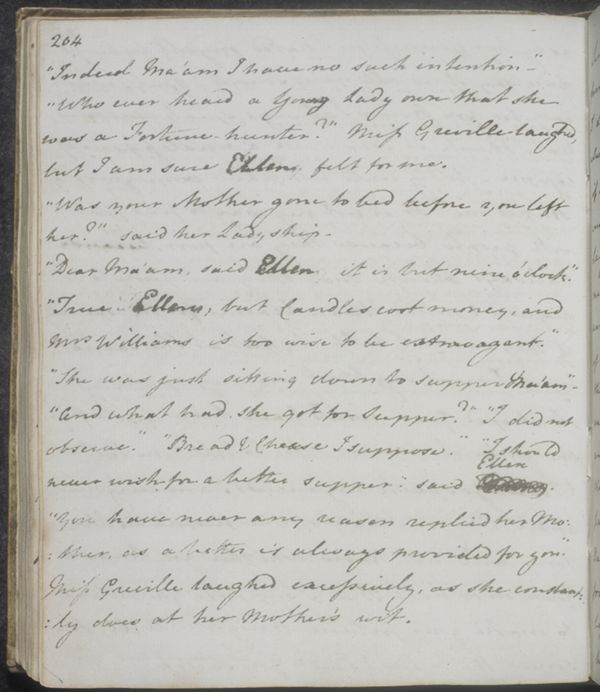 204
"Indeed Ma'am I have no such intention"-
"Who ever heard a young Lady own that she
was a Fortune-hunter?" Miss Greville laughed,
but I am sure Ellen felt for me.
"Was your Mother gone to bed before you left
her?" said her Ladyship-
"Dear Ma'am, said Ellen it is but nine o'clock".
"True Ellen, but Candles cost money, and
Mrs Williams is too wise to be extravagant."
"She was just sitting down to supper Ma'am"-
"And what had she got for Supper?" "I did not
observe." "Bread & Cheese I suppose." "I should
never wish for a better supper". said Ellen.
"You have never any reason replied her Mo:
:ther, as a better is always provided for you."
Miss Greville laughed excessively, as she constant:
:ly does at her Mother's wit.